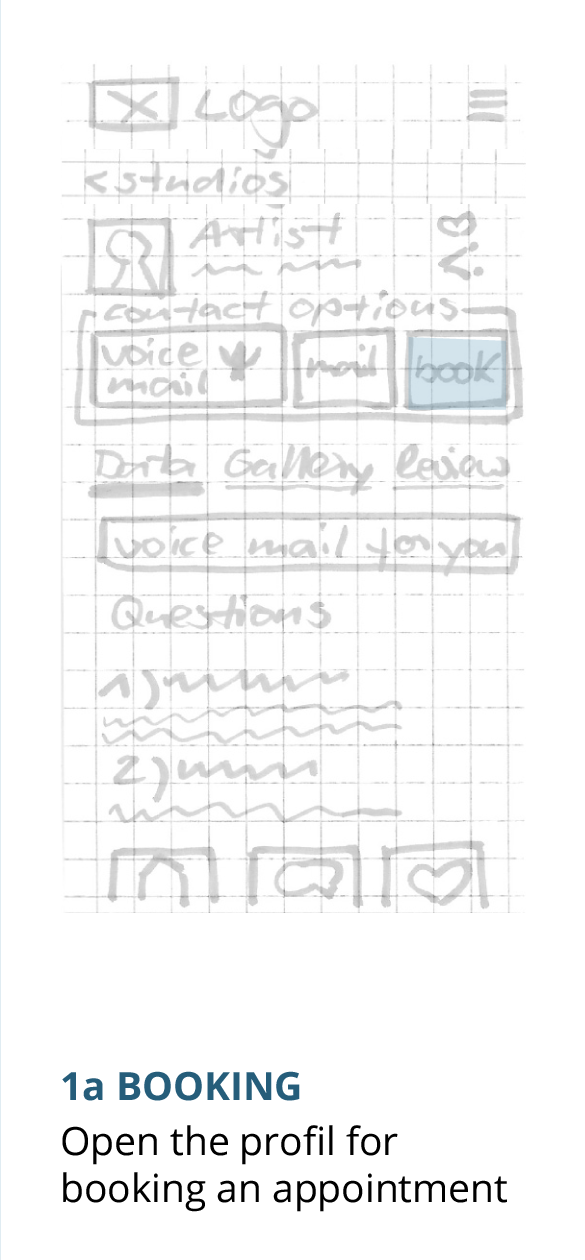 Logo
<studios
Artist
contact options
voice mail
mail
book
Data Gallery Review
voice mail for you
Questions
1)
2)
1a BOOKING
Open the profil for
booking an appointment